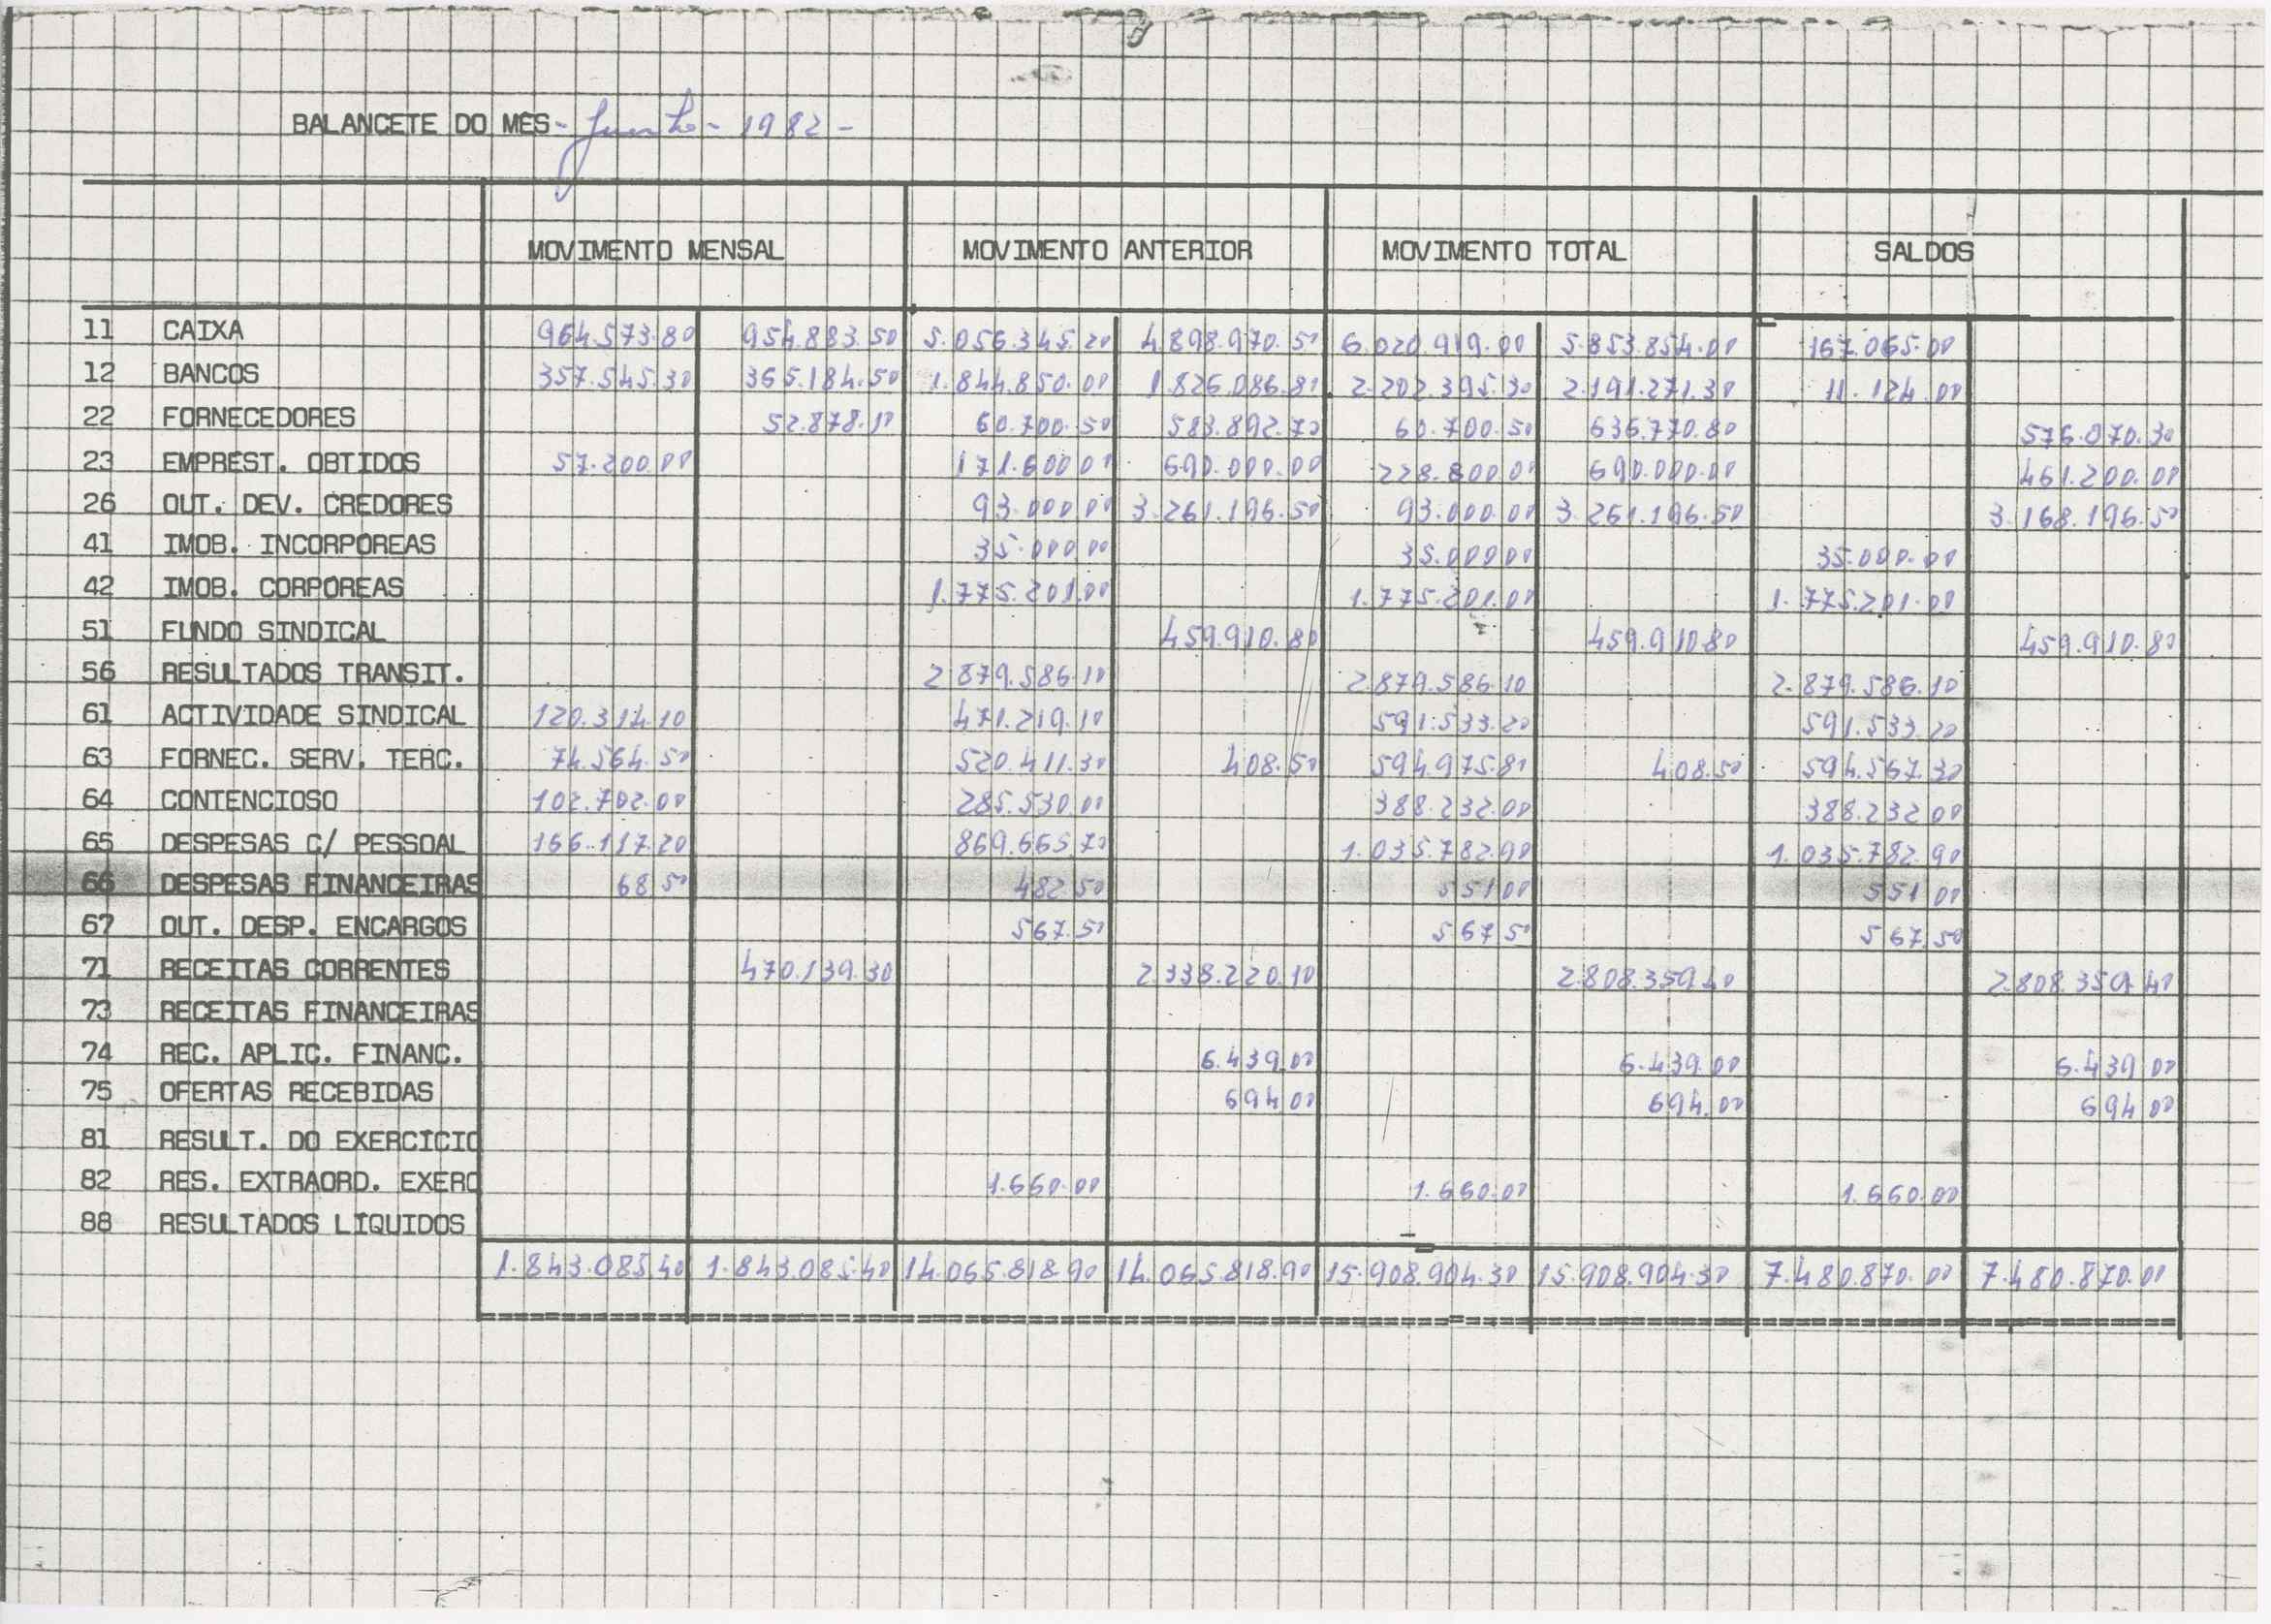 BALANCETE DO MÊS - Junho - 1982 -
MOVIMENTO MENSAL MOVIMENTO ANTERIOR MOVIMENTO TOTAL SALDOS
11 CAIXA 964.573.80 954.883.50 5.056.345.20 4.898.970.50 6.020.919.00 5.853.854.00 167.065.00
12 BANCOS 357.545.30 365.184.50 1.844.850.00 1.826.086.80 2.202.395.30 2.191.271.30 11.124.00
22 FORNECEDORES 52.878.10 60.700.50 583.892.70 60.700.50 636.770.80 576.070.30
23 EMPREST. OBTIDOS 57.200.00 171.600 00 690.000.00 228.800.00 690.000.00 461.200.00
26 OUT. DEV. CREDORES 93.000 00 3.261.196.50 93.000.00 3.261.196.50 3.168.196.50
41 IMOB. INCORPOREAS 35.000 00 35.000 00 35.000.00
42 IMOB. CORPOREAS 1.775.201.00 1.775.201.00 1.775.201.00
51 FUNDO SINDICAL 459.910.80 459.910 80 459.910.80
56 RESULTADOS TRANSIT. 2 879.586.10 2.879.586.10 2.879.586.10
61 ACTIVIDADE SINDICAL 120.314.10 471.219.10 591.533.20 591.533.20
63 FORNEC. SERV. TERC. 74.564.50 520.411.30 408.50 594.975.80 408.50 594.567.30
64 CONTENCIOSO 102.702.00 285.530.00 388.232.00 388.232 00
65 DESPESAS C/ PESSOAL 166.117.20 869.665.70 1.035.782.90 1.035.782.90
66 DESPESAS FINANCEIRAS 68 50 482 50 551 00 551 00
67 OUT. DESP. ENCARGOS 567.50 567 50 567.50
71 RECEITAS CORRENTES 470.139.30 2.338.220.10 2.808.359.40 2.808.359.40
73 RECEITAS FINANCEIRAS
74 REC. APLIC. FINANC. 6.439.00 6.439.00 6.439 00
75 OFERTAS RECEBIDAS 694 00 694.00 694 00
81 RESULT. DO EXERCÍCIO
82 RES. EXTRAORD. EXERC 1.660.00 1.660.00 1.660.00
88 RESULTADOS LÍQUIDOS
1.843.085.40 1.843.085.40 14.065.818.90 14.065.818.90 15.908.904.30 15.908.904.30 7.480.870.00 7.480.870.00